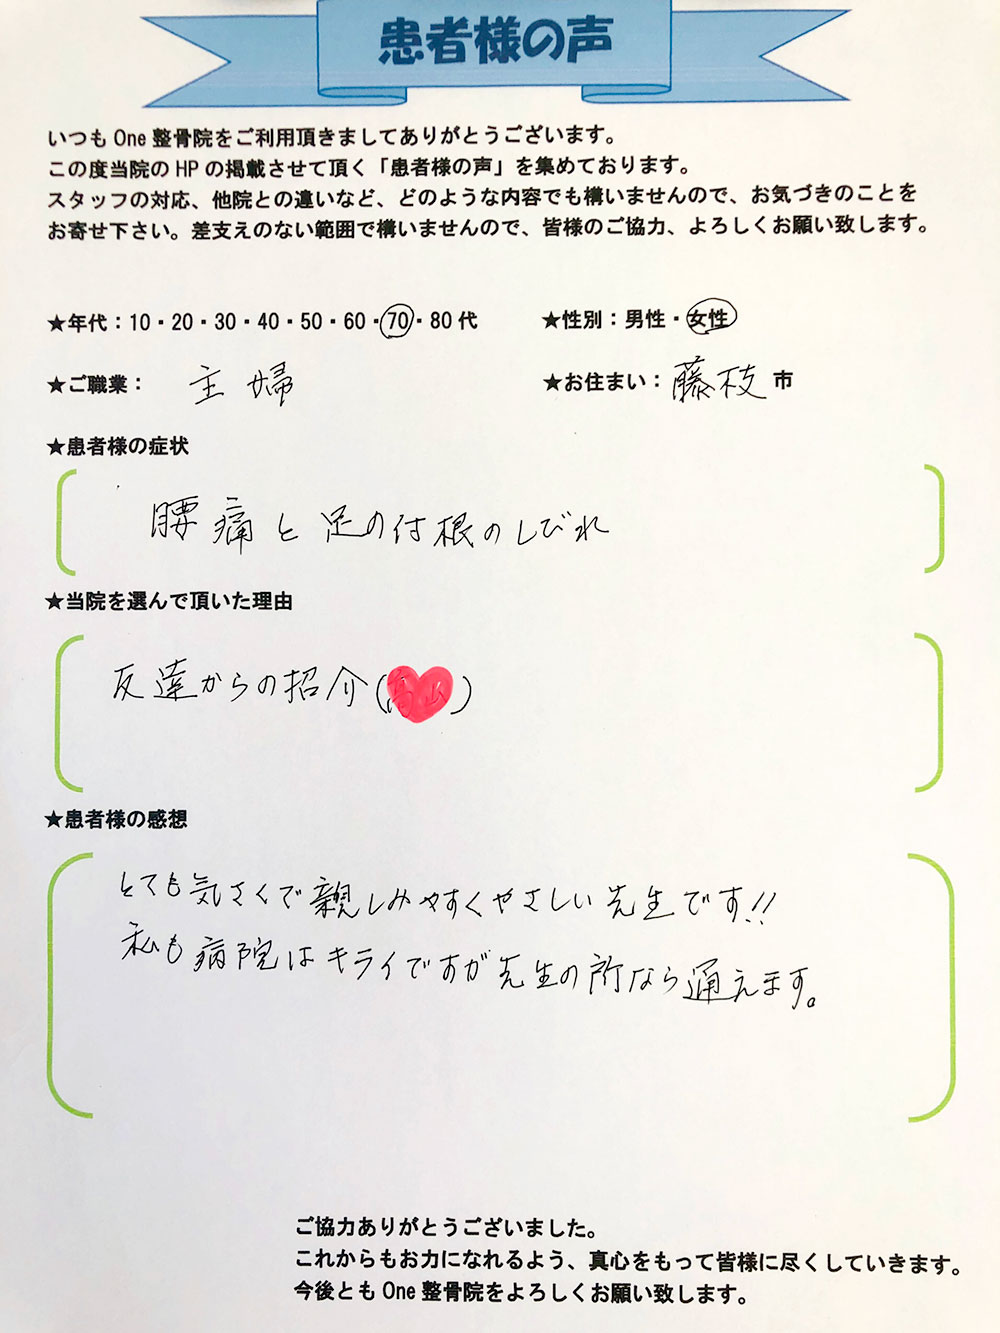 患者様の声
いつも One 整骨院をご利用頂きましてありがとうございます。
この度当院の HP の掲載させて頂く「患者様の声」を集めております。
スタッフの対応、他院との違いなど、どのような内容でも構いませんので、お気づきのことを
お寄せ下さい。差支えのない範囲で構いませんので、皆様のご協力、よろしくお願い致します。
★年代：10・20・30・40・50・60・70・80 代 ★性別：男性・女性
★ご職業： 主婦 ★お住まい： 藤枝 市
★患者様の症状
腰痛と足の付根のしびれ
★当院を選んで頂いた理由
友達からの紹介( )
★患者様の感想
とても気さくで親しみやすくやさしい先生です!!
私も病院はキライですが先生の所なら通えます。
ご協力ありがとうございました。
これからもお力になれるよう、真心をもって皆様に尽くしていきます。
今後とも One 整骨院をよろしくお願い致します。